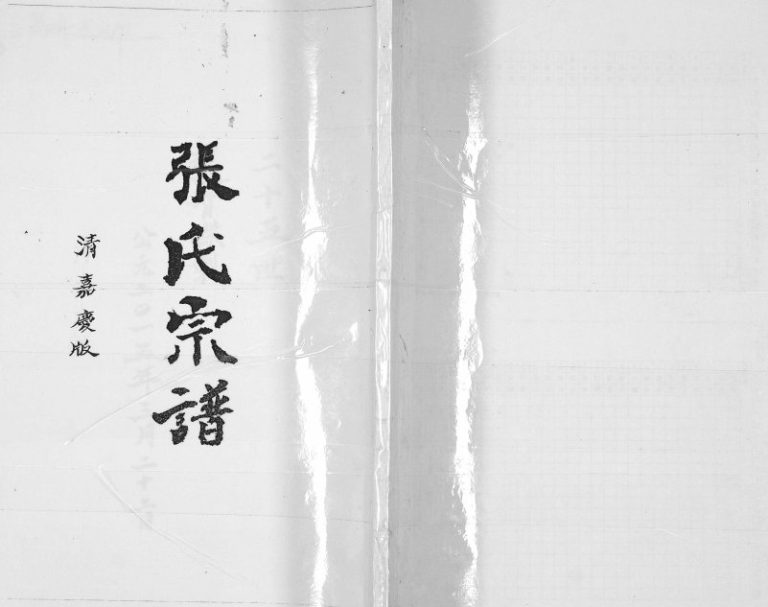 張氏宗譜
清嘉慶版